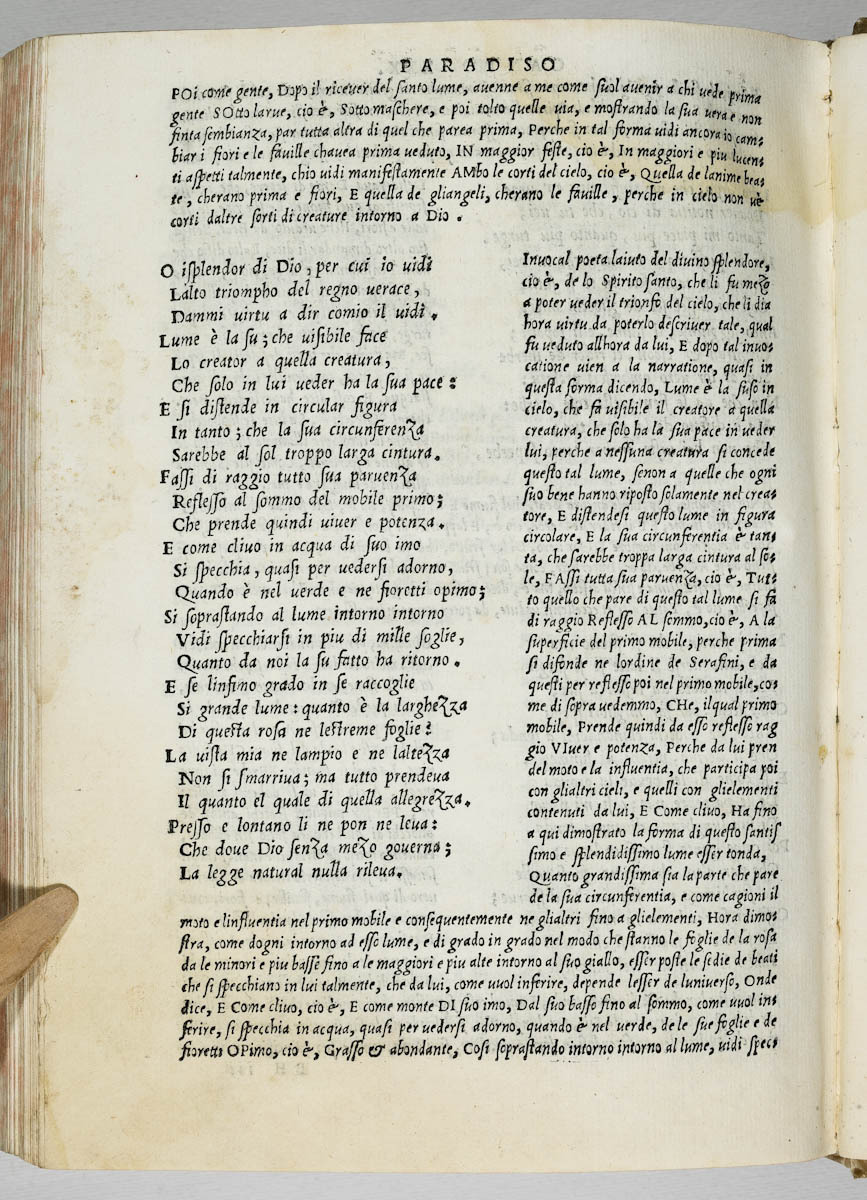 PARADISO
POi come gente, Dopo il ricever del santo lume, auenne a me come suol auenir a chi vede prima
gente SOtto larue, cio è, Sotto maschere, e poi tolto quelle via, e mostrando la sua vera e non
finta sembianza, par tutta altra di quel che parea prima, Perche in tal forma vidi ancora io cam-
biar i fiori e le fauille chauea prima veduto, IN maggior feste, cio è, In maggiori e piu lucen-
ti aspetti talmente, chio vidi manifestamente AMbo le corti del cielo, cio è, Quella de lanime bea-
te, cherano prima e fiori, E quella de gliangeli, cherano le fauille, perche in cielo non vè
corti daltre sorti di creature intorno a Dio.
O isplendor di Dio, per cui io vidi
Lalto triompho del regno verace,
Dammi virtu a dir comio il vidi.
Lume è la su; che visibile face
Lo creator a quella creatura,
Che solo in lui veder ha la sua pace:
E si distende in circular figura
In tanto; che la sua circunferenza
Sarebbe al sol troppo larga cintura.
Fassi di raggio tutto sua paruenza
Reflesso al sommo del mobile primo;
Che prende quindi viuer e potenza.
E come cliuo in acqua di suo imo
Si specchia, quasi per vedersi adorno,
Quando è nel verde e ne fioretti opimo;
Si soprastando al lume intorno intorno
Vidi specchiarsi in piu di mille soglie,
Quanto da noi la su fatto ha ritorno.
E se linfimo grado in se raccoglie
Si grande lume: quanto è la larghezza
Di questa rosa ne lestreme foglie?
La vista mia ne lampio e ne laltezza
Non si smarriua; ma tutto prendeua
Il quanto el quale di quella allegrezza.
Presso e lontano li ne pon ne leua:
Che doue Dio senza mezo gouerna;
La legge natural nulla rileua.
Inuocal poeta laiuto del diuino splendore,
cio è, de lo Spirito santo, che li fu mezo
a poter veder il trionfo del cielo, che li dia
hora virtu da poterlo descriuer tale, qual
fu veduto allhora da lui, E dopo tal inuo-
catione vien a la narratione, quasi in
questa forma dicendo, Lume è la suso in
cielo, che fa visibile il creatore a quella
creatura, che solo ha la sua pace in veder
lui, perche a nessuna creatura si concede
questo tal lume, senon a quelle che ogni
suo bene hanno riposto solamente nel crea-
tore, E distendesi questo lume in figura
circolare, E la sua circunferentia è tan-
ta, che sarebbe troppa larga cintura al so-
le, FAssi tutta sua paruenza, cio è, Tut-
to quello che pare di questo tal lume si fa
di raggio Reflesso AL sommo, cio è, A la
superficie del primo mobile, perche prima
si difonde ne lordine de Serafini, e da
questi per reflesso poi nel primo mobile, co-
me di sopra vedemmo, CHe, ilqual primo
mobile, Prende quindi da esso reflesso rag
gio VIuer e potenza, Perche da lui pren
del moto e la influentia, che participa poi
con glialtri cieli, e quelli con glielementi
contenuti da lui, E Come cliuo, Ha fino
a qui dimostrato la forma di questo santis
simo e splendidissimo lume esser tonda,
Quanto grandissima sia la parte che pare
de la sua circunferentia, e come cagioni il
moto e linfluentia nel primo mobile e consequentemente ne glialtri fino a glielementi, Hora dimo-
stra, come dogni intorno ad esso lume, e di grado in grado nel modo che stanno le foglie de la rosa
da le minori e piu basse fino a le maggiori e piu alte intorno al suo giallo, esser poste le sedie de beati
che si specchiano in lui talmente, che da lui, come vuol inferire, depende lesser de luniuerso, Onde
dice, E Come cliuo, cio è, E come monte DI suo imo, Dal suo basso fino al sommo, come vuol in-
ferire, si specchia in acqua, quasi per vedersi adorno, quando è nel verde, de le sue foglie e de
fioretti OPimo, cio è, Grasso & abondante, Cosi soprastando intorno intorno al lume, vidi spec-